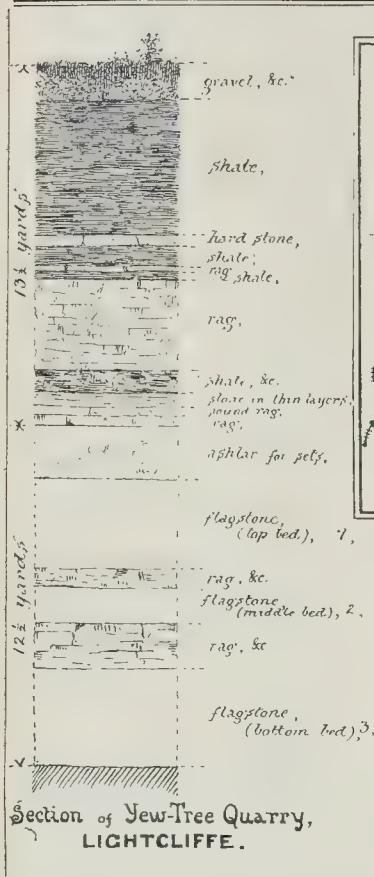 gravel, &c.
shale,
hard stone,
shale,
rag
shale,
rag,
shale, &c.
stone in thin layers,
sound rag.
rag.
ashlar for sets,
flagstone,
(top bed), 1,
rag, &c.
flagstone
(middle bed), 2,
rag, &c
flagstone,
(bottom bed), 3.
13½ yards
12½ yards
Section of Yew-Tree Quarry,
LIGHTCLIFFE.